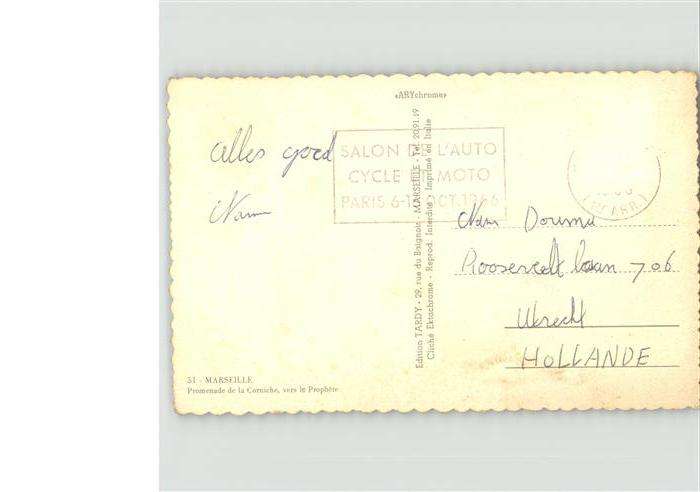 «ARYchrome»
Alles goed
Nam
SALON DE L'AUTO
CYCLE ET MOTO
PARIS 6-1 OCT.1966
Edition TARDY - 29, rue du Baignoir - MARSEILLE - Tel. 20.91.19
Cliché Ektachrome - Reprod. Interdite - Imprimé en Italie
Nam Douma
Roosevelt laan 706
Utrecht
HOLLANDE
51 - MARSEILLE
Promenade de la Corniche, vers le Prophète